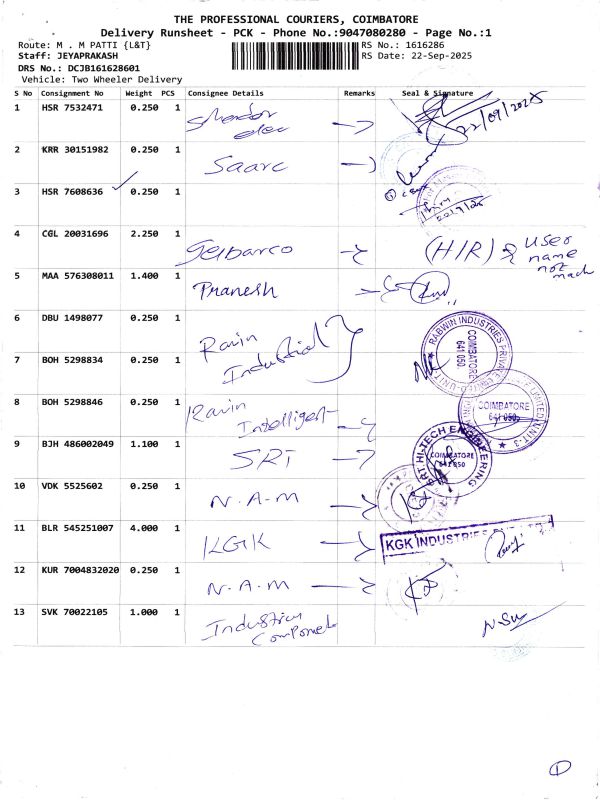 THE PROFESSIONAL COURIERS, COIMBATORE
Delivery Runsheet - PCK - Phone No.:9047080280 - Page No.:1
Route: M . M PATTI {L&T}
RS No.: 1616286
Staff: JEYAPRAKASH
RS Date: 22-Sep-2025
DRS No.: DCJB161628601
Vehicle: Two Wheeler Delivery
S No Consignment No Weight PCS Consignee Details Remarks Seal & Signature
1 HSR 7532471 0.250 1 elec 22/09/2025
2 KRR 30151982 0.250 1 Saarc
3 HSR 7608636 0.250 1
4 CGL 20031696 2.250 1 Gelbarco (H/R) & user name not mach
5 MAA 576308011 1.400 1 Pranesh
6 DBU 1498077 0.250 1 Ravin Industrial
RABWIN INDUSTRIES PRIVATE COIMBATORE 641 050
7 BOH 5298834 0.250 1
8 BOH 5298846 0.250 1 Ravin Intelligent
COIMBATORE 641 050 LIMITED UNIT-3
9 BJH 486002049 1.100 1 SRT
SRT HI-TECH ENGINEERING COIMBATORE 641 050
10 VDK 5525602 0.250 1 N.A.M
11 BLR 545251007 4.000 1 KGK
KGK INDUSTRIES
12 KUR 7004832020 0.250 1 N.A.M
13 SVK 70022105 1.000 1 Industrial Component
1